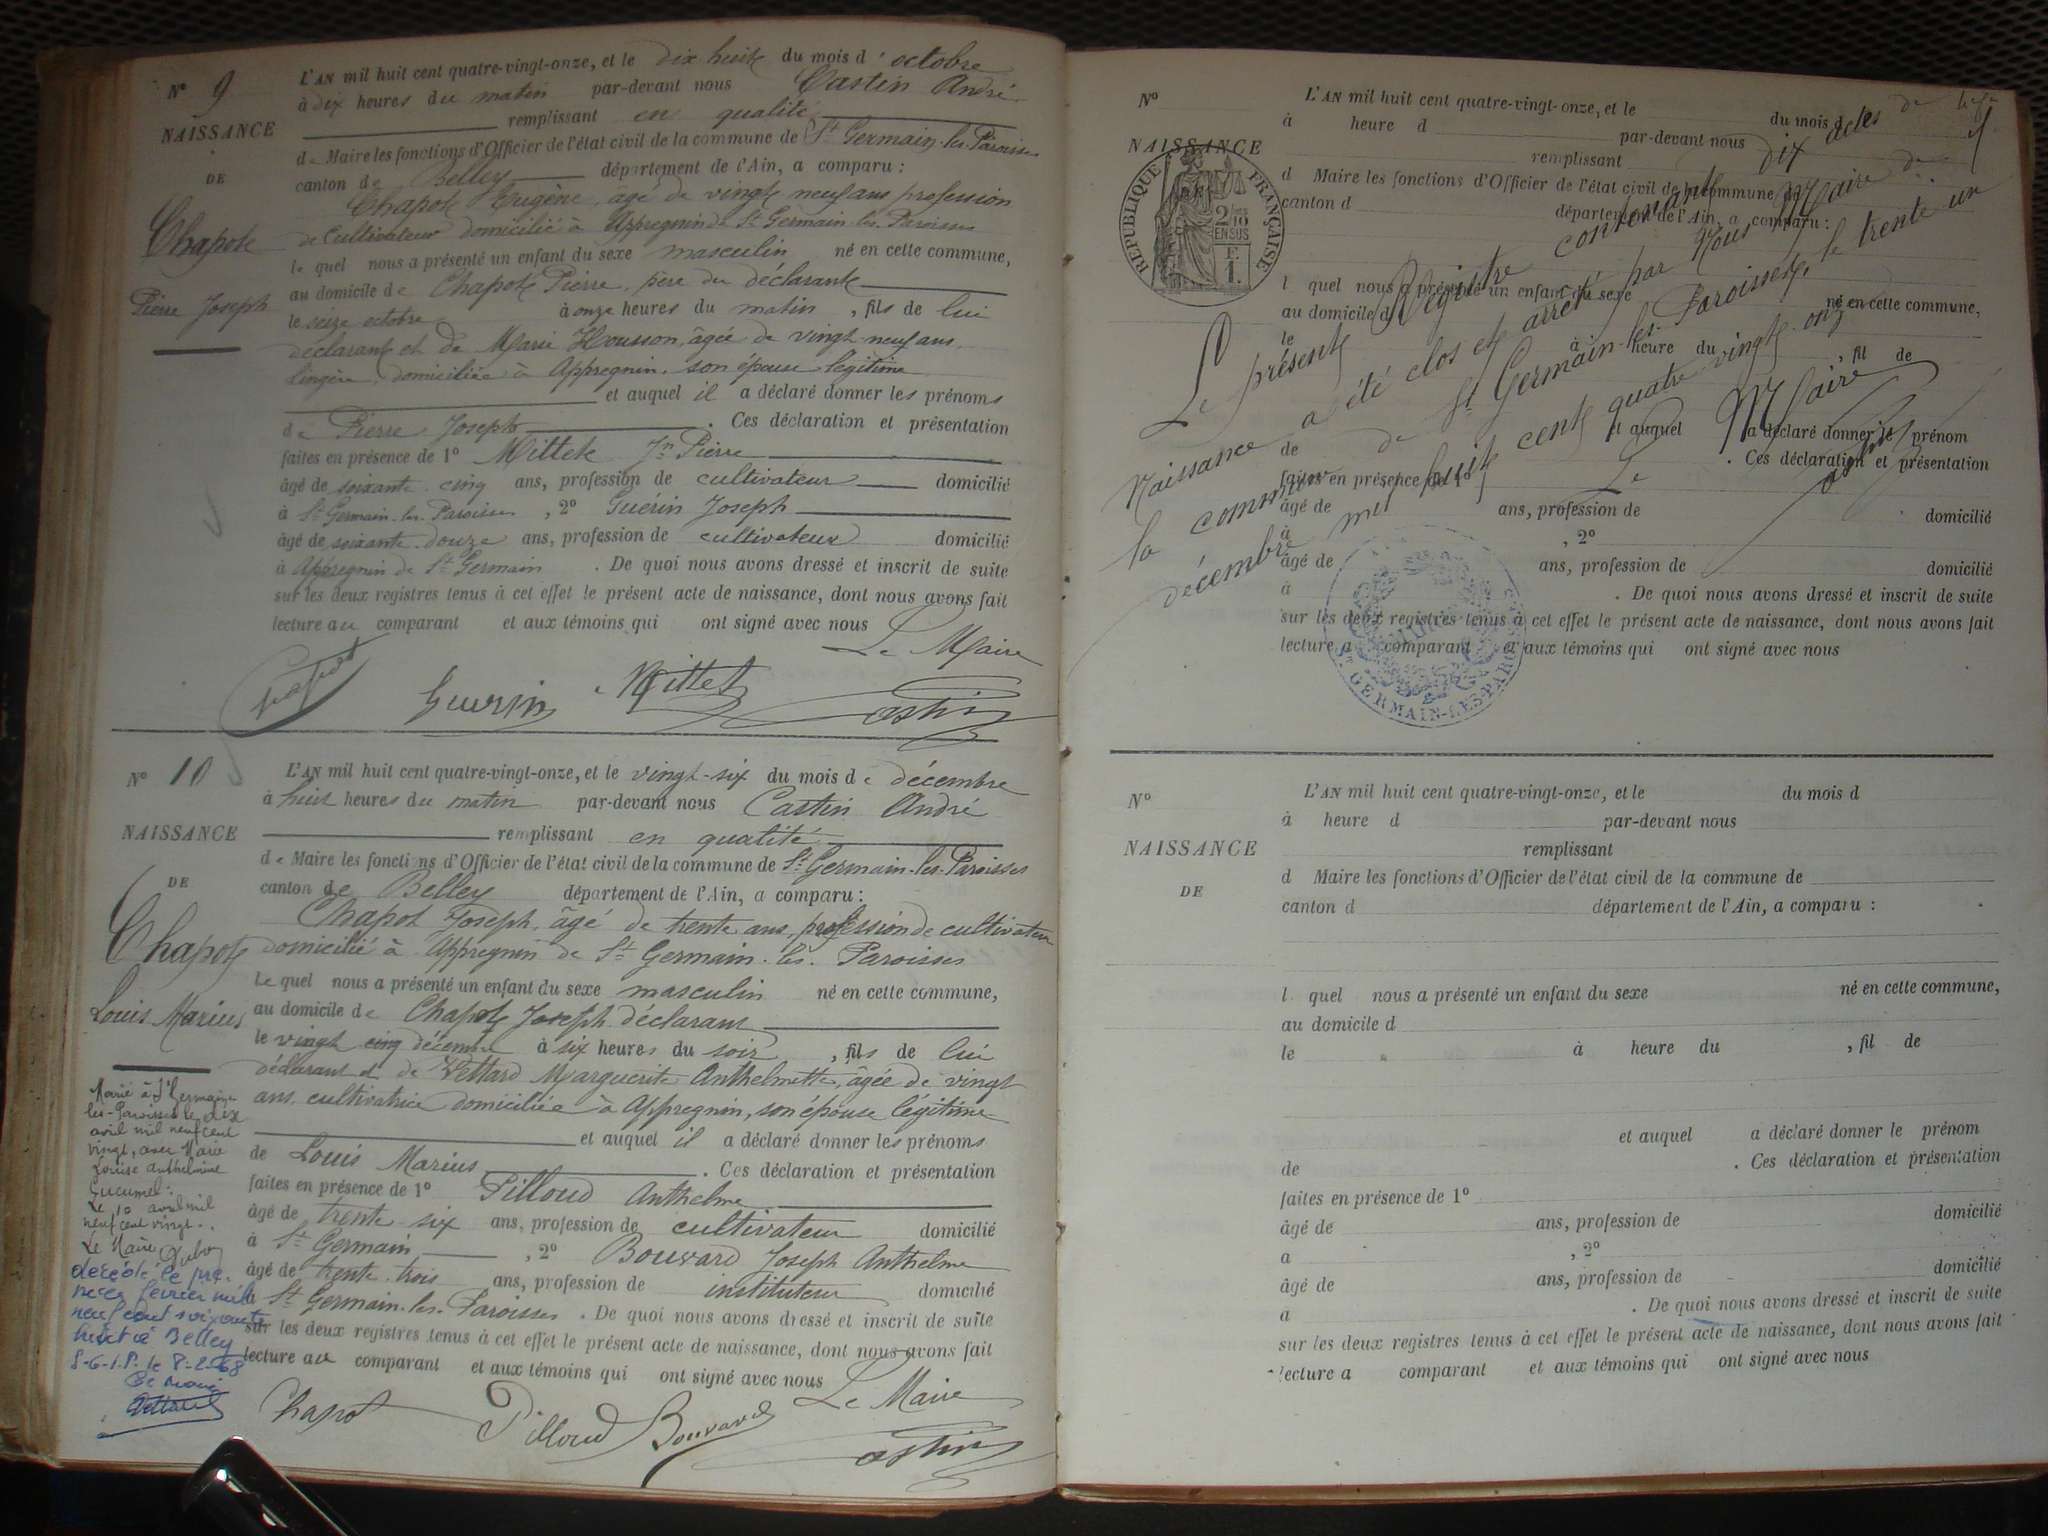 N° 9
NAISSANCE
DE
Chapot
Pierre Joseph
L'AN mil huit cent quatre-vingt-onze, et le dix huit du mois d'octobre
à dix heures du matin par-devant nous Castin André
remplissant en qualité
de Maire les fonctions d'Officier de l'état civil de la commune de St Germain-les-Paroisses
canton de Belley département de l'Ain, a comparu :
Chapot Eugène, âgé de vingt neuf ans profession
de Cultivateur domicilié à Appregnin de St Germain-les-Paroisses
le quel nous a présenté un enfant du sexe masculin né en cette commune,
au domicile de Chapot Pierre, père du déclarant
le seize octobre à onze heures du matin, fils de lui
déclarant et de Marie Housson, âgée de vingt-neuf ans
lingère, domiciliée à Appregnin, son épouse légitime
et auquel il a déclaré donner les prénoms
de Pierre Joseph. Ces déclaration et présentation
faites en présence de 1° Mittet Jn Pierre
âgé de soixante-cinq ans, profession de cultivateur domicilié
à St Germain-les-Paroisses, 2° Guérin Joseph
âgé de soixante-douze ans, profession de cultivateur domicilié
à Appregnin de St Germain. De quoi nous avons dressé et inscrit de suite
sur les deux registres tenus à cet effet le présent acte de naissance, dont nous avons fait
lecture au comparant et aux témoins qui ont signé avec nous
Le Maire
Guerin Mittet Castin
N° 10
NAISSANCE
DE
Chapot
Louis Marius
L'AN mil huit cent quatre-vingt-onze, et le vingt-six du mois de décembre
à huit heures du matin par-devant nous Castin André
remplissant en qualité
de Maire les fonctions d'Officier de l'état civil de la commune de St Germain-les-Paroisses
canton de Belley département de l'Ain, a comparu :
Chapot Joseph, âgé de trente ans, profession de cultivateur
domicilié à Appregnin de St Germain-les-Paroisses
le quel nous a présenté un enfant du sexe masculin né en cette commune,
au domicile de Chapot Joseph déclarant
le vingt cinq décembre à six heures du soir, fils de lui
déclarant et de Vettard Marguerite Anthelmette, âgée de vingt
ans, cultivatrice domiciliée à Appregnin, son épouse légitime
et auquel il a déclaré donner les prénoms
de Louis Marius. Ces déclaration et présentation
faites en présence de 1° Pilloud Anthelme
âgé de trente-six ans, profession de cultivateur domicilié
à St Germain, 2° Bouvard Joseph Anthelme
âgé de trente-trois ans, profession de instituteur domicilié
St Germain-les-Paroisses. De quoi nous avons dressé et inscrit de suite
sur les deux registres tenus à cet effet le présent acte de naissance, dont nous avons fait
lecture au comparant et aux témoins qui ont signé avec nous
Le Maire
Chapot Pilloud Bouvard Castin
Marié à St Germain-
les-Paroisses le dix
avril mil neuf cent
vingt, avec Marie
Louise Anthelmine
Cucumel.
Le 10 avril mil
neuf cent vingt.
Le Maire
décédé le pre-
mier février mille
neuf cent soixante
huit à Belley
S-G-l-P. le 8-2-68
Le Maire
Vettard
N°
NAISSANCE
RÉPUBLIQUE FRANÇAISE
2/10 EN SUS
F.
1.
L'AN mil huit cent quatre-vingt-onze, et le du mois d
à heure d par-devant nous
remplissant
d Maire les fonctions d'Officier de l'état civil de la commune de
canton d département de l'Ain, a comparu :
l quel nous a présenté un enfant du sexe né en cette commune,
au domicile d
le à heure du , fil de
et auquel a déclaré donner le prénom
de . Ces déclaration et présentation
faites en présence de 1°
âgé de ans, profession de domicilié
à , 2°
âgé de ans, profession de domicilié
à . De quoi nous avons dressé et inscrit de suite
sur les deux registres tenus à cet effet le présent acte de naissance, dont nous avons fait
lecture a comparant et aux témoins qui ont signé avec nous
Le présent Registre contenant Dix actes de
Naissance a été clos et arrêté par Nous Maire de
la commune de St Germain-les-Paroisses, le trente un
décembre mil huit cent quatre vingt onze
Le Maire
Castin
MAIRIE
ST GERMAIN-LES-PAROISSES
N°
NAISSANCE
DE
L'AN mil huit cent quatre-vingt-onze, et le du mois d
à heure d par-devant nous
remplissant
d Maire les fonctions d'Officier de l'état civil de la commune de
canton d département de l'Ain, a comparu :
l quel nous a présenté un enfant du sexe né en cette commune,
au domicile d
le à heure du , fil de
et auquel a déclaré donner le prénom
de . Ces déclaration et présentation
faites en présence de 1°
âgé de ans, profession de domicilié
a , 2°
âgé de ans, profession de domicilié
a . De quoi nous avons dressé et inscrit de suite
sur les deux registres tenus à cet effet le présent acte de naissance, dont nous avons fait
lecture a comparant et aux témoins qui ont signé avec nous